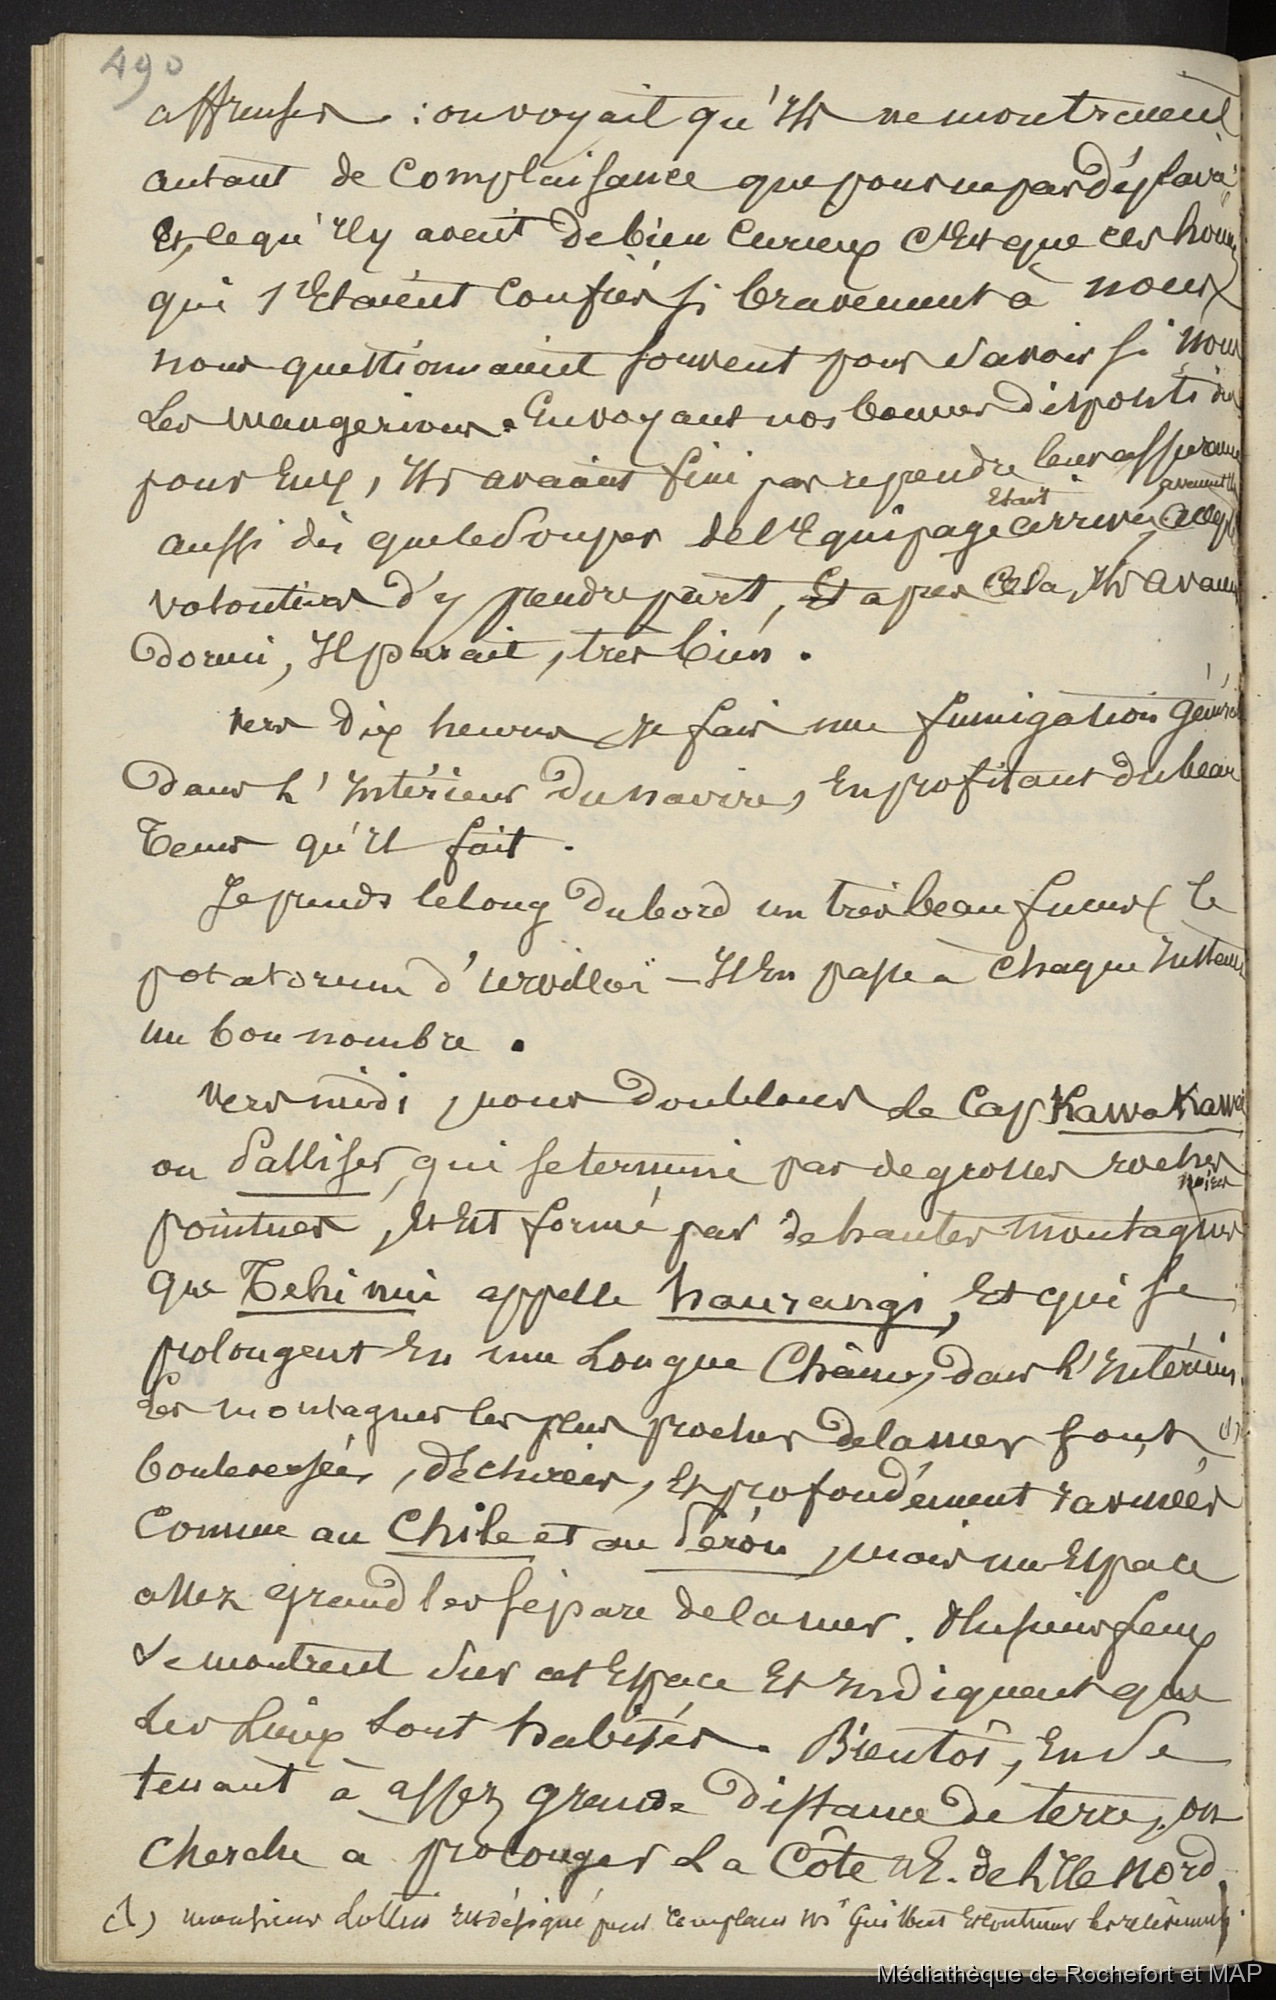 490
affreuses : on voyait qu'Ils ne montraient
autant de Complaisance que pour ne pas déplaire
Et, ce qu'Il y avait de bien Curieux C'Est que ces hommes
qui s'Etaient Confiés si bravement à nous
nous questionnaient souvent pour savoir si nous
Les mangerions. En voyant nos bonnes dispositions
pour Eux, Ils avaient fini par reprendre leur assurance
Etait avaient Ils
aussi dès que le souper de l'Equipage arrivé, accepté
volontiers d'y prendre part, Et après Cela, Ils avaient
dormi, Il parait, très bien.
vers dix heures, Je fais une fumigation générale
dans L'Intérieur du navire, En profitant du beau
Tems qu'Il fait.
Je prends le long du bord un très beau fucus Le
potatorum d'urvillei – Il En passe à Chaque Instant
un bon nombre.
Vers midi, nous doublons Le Cap KawaKawa
ou Palliser, qui se termine par de grosses roches
noires
pointues, Et Est formé par de hautes montagnes
que Tehi nui appelle haurangi, Et qui se
prolongent En une Longue Chaîne, dans L'Intérieur.
Les montagnes les plus proches de la mer sont (1)
bouleversées, déchirées, Et profondément ravinées
Comme au Chile et au Pérou, mais un Espace
assez grand les sépare de la mer. Plusieurs feux
Se montrent sur cet Espace Et Indiquent que
Les Lieux sont habités. Bientôt, En se
tenant à assez grande distance de terre, on
Cherche à prolonger La Côte N E. de L'Ile Nord.
(1) monsieur Lottin Est désigné pour remplacer Mr Guilbert Et continuer les relèvements.
Médiathèque de Rochefort et MAP